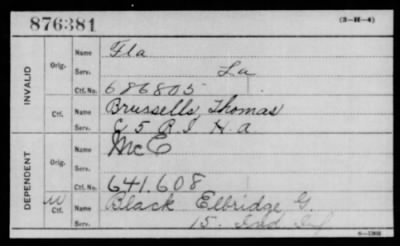 876381 (3-H-4)
INVALID
Orig. Name Fla
Serv. La
Ctf. No. 686805
Ctf. Name Brussells, Thomas
Serv. C 5 R.I. H.A
DEPENDENT
Orig. Name McE
Serv.
Ctf. No. 641.608
W Ctf. Name Black Elbridge G.
Serv. 15. Ind Inf